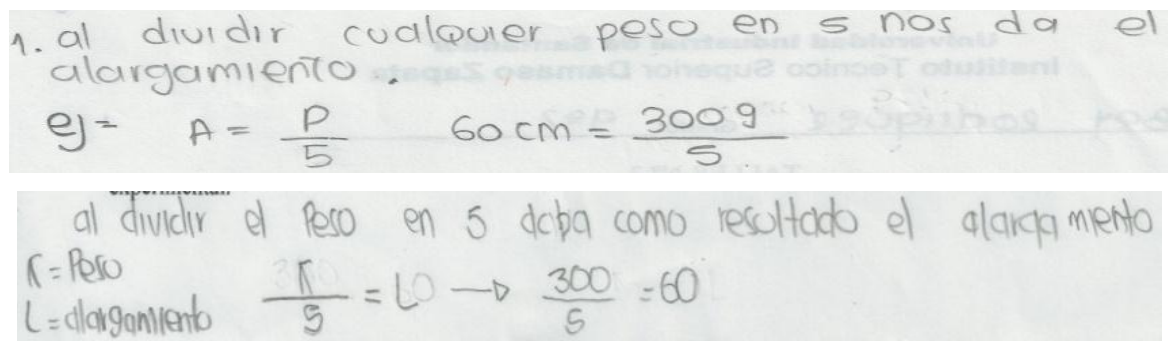 1. al dividir cualquier peso en 5 nos da el
alargamiento.
ej= A = P/5 60 cm = 300g/5
al dividir el Peso en 5 daba como resultado el alargamiento
K = Peso
L = alargamiento K/5 = L → 300/5 = 60